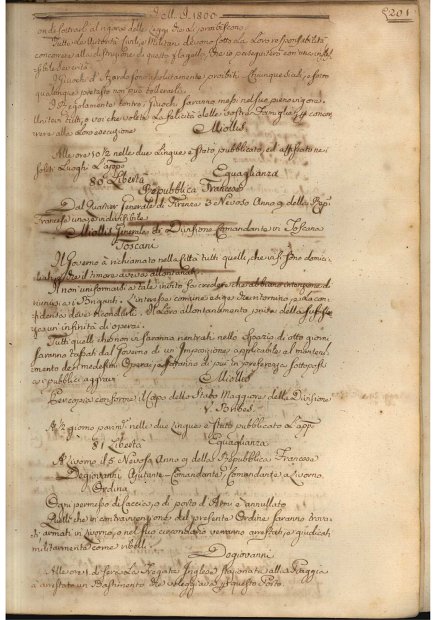 A. M. D. 1800
201
ondesottrarli al rigore delle Leggi che li proibiscono.
Tutte le Autorità Civili, e Militari devono sotto la Loro responsabilità
concorrere alla distruzione di questo flagello, che io perseguiterò con
sibile severità.
I Giuochi d'Azardo sono assolutamente proibiti. Chiunque siasi, e sotto
qualunque pretesto non può tollerarli.
I Regolamenti contro i Giuochi saranno messi nel suo pieno vigore.
Unitevi tutti, o voi che volete la felicità delle vostre Famiglie, per concor-
rere alla Loro esecuzione
Miollis
Alle ore 10½ nelle due Lingue è stato pubblicato, ed affisso ne
soliti Luoghi
80 Libertà Eguaglianza
Repubblica Francese
Dal Quartier Generale di Firenze 3 Nevoso Anno 9 della Rep.
Francese una, e indivisibile
Miollis Generale di Divisione Comandante in Toscana
Toscani
Il Governo à richiamato nella Città tutti quelli, che vi si sono domici-
e che il timore aveva allontanati.
Il non uniformarsi a tale invito fa credere che abbiano intenzione di
riunirsi ai Briganti. L'interesse comune esige che ritornino, e la con-
fidenza deve ricondurli. Il Loro allontanamento priva della
za un'infinità di operai.
Tutti quelli che non vi saranno rientrati nello spazio di otto giorni
saranno tassati dal Governo di un Imposizione applicabile al manteni-
mento de medesimi Operai, e saranno di più in preferenza sottoposti
ai pubblici aggravi
Miollis
Per copia conforme il Capo dello Stato Maggiore della Divisione
V. Bribes
A ½ giorno parim. nelle due Lingue è stato pubblicato
81 Libertà Eguaglianza
A Livorno il 5 Nevoso Anno 9 della Repubblica Francese
Degiovanni Ajutante-Comandante, Comandante a Livorno
Ordina
Ogni permesso di caccia, o di porto d'Armi è annullato
Quelli che in contravvenzione del presente Ordine saranno trova-
ti armati in Livorno, o nel suo circondario verranno arrestati, e giudicati
militarmente come ribelli
Degiovanni
Alle ore 1 di sera La Fregata Inglese stazionata alla Spiaggia
à arrestato un Bastimento che veleggiava a questo Porto.